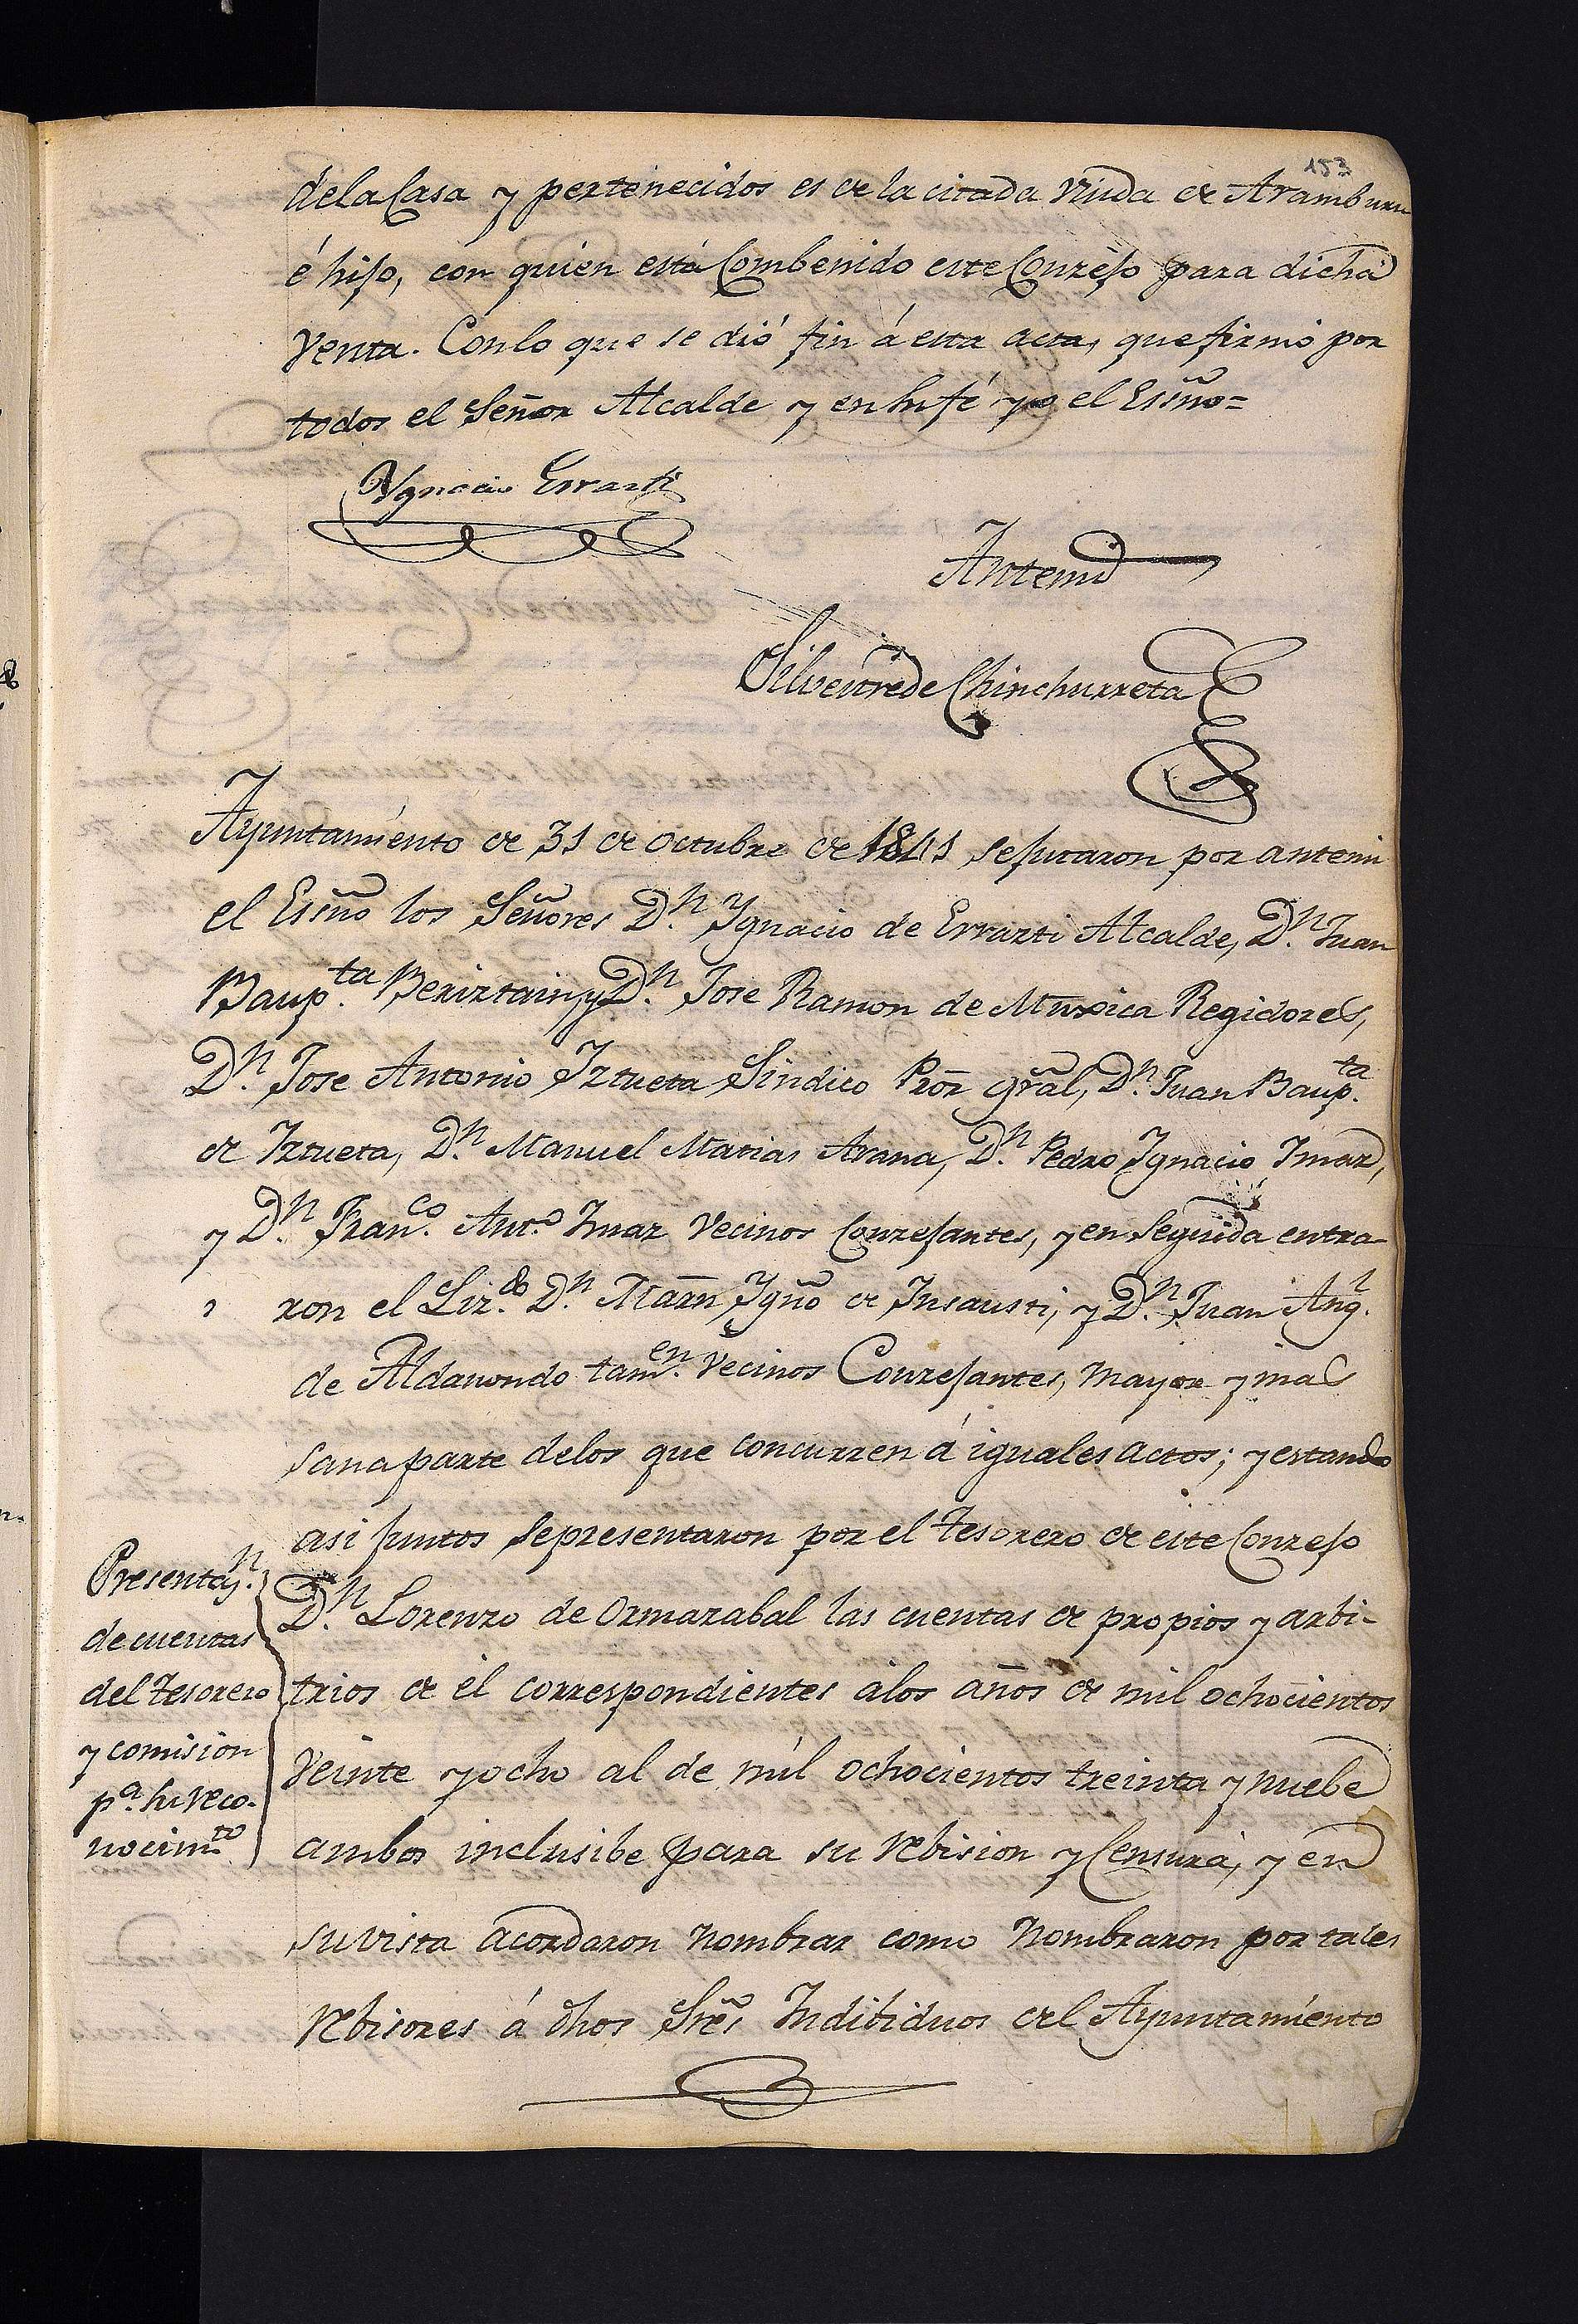 153
dela Casa y pertenecidos es de la citada Viuda de Aramburu
é hijo, con quien está Combenido este Conzejo para dicha
venta. Conlo que se dió fin á esta acta, que firmó por
todos el Señor Alcalde y en su fé yo el Essño=
Ygnacio Errazti
Antemi
Silvestre de Chinchurreta
Ayuntamiento de 31 de Octubre de 1841 se juntaron por antemi
el Essño los Señores Dn. Ygnacio de Errazti Alcalde, Dn. Juan
Baup.ta Beriztain, y Dn. Jose Ramon de Muxica Regidores,
Dn. Jose Antonio Iztueta Sindico Pror gral, Dn. Juan Baup.ta
de Iztueta, Dn. Manuel Matias Arana, Dn. Pedro Ygnacio Imaz,
y Dn. Fran.co Ant.o Imaz Vecinos Conzejantes, y en Seguida entra-
ron el Liz.do Dn. Marn Ygño de Insausti, y Dn. Juan Ang.l
de Aldanondo tam.en Vecinos Conzejantes, mayor y mas
sana parte delos que concurren á iguales actos; y estando
asi juntos se presentaron por el tesorero de este Conzejo
Presentaz.n
de cuentas
del tesorero
y comision
p.a su reco-
nocim.to
Dn. Lorenzo de Ormazabal las cuentas de propios y arbi-
trios de él correspondientes álos años de mil ochocientos
Veinte y ocho al de mil ochocientos treinta y nuebe
ambos inclusibe para su rebision y Censura, y en
su vista acordaron nombrar como nombraron por tales
rebisores á dhos Sres Indibiduos del Ayuntamiento